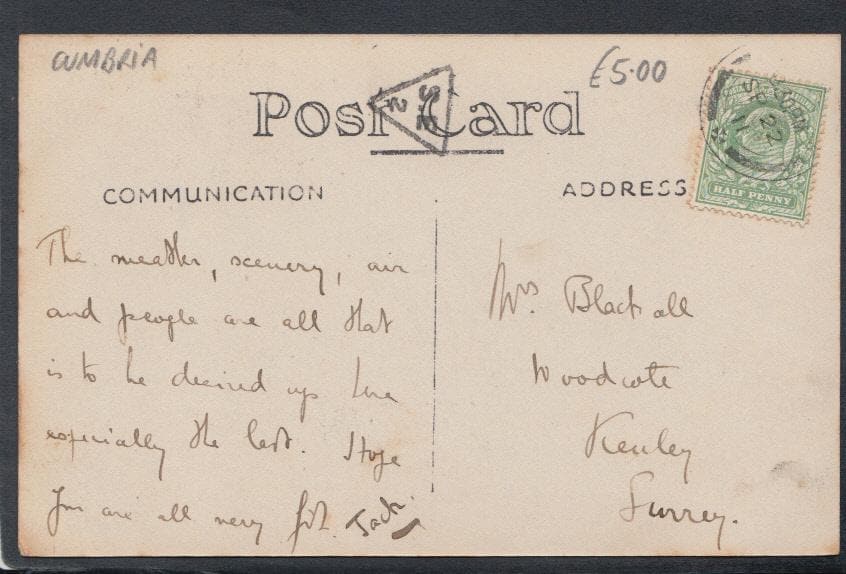 CUMBRIA
£5.00
Post Card
COMMUNICATION
ADDRESS
HALF PENNY
22
11
The weather, scenery, air
and people are all that
is to be desired up here
especially the last. Hope
you are all very fit. Jack.
Mrs. Blackall
Woodcote
Kenley
Surrey.